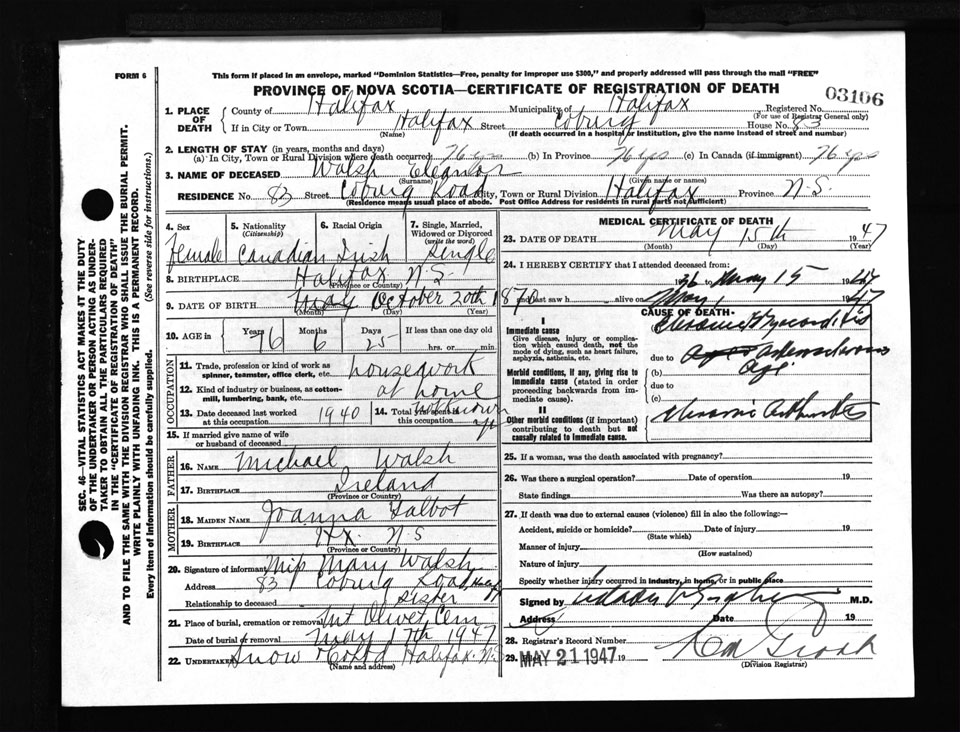 FORM 6
This form if placed in an envelope, marked "Dominion Statistics—Free, penalty for improper use $300," and properly addressed will pass through the mail "FREE"
PROVINCE OF NOVA SCOTIA—CERTIFICATE OF REGISTRATION OF DEATH
03106
1. PLACE OF DEATH
County of Halifax Municipality of Halifax Registered No.
(For use of Registrar General only)
If in City or Town Halifax Street Coburg House No. 83
(Name) (If death occurred in a hospital or institution, give the name instead of street and number)
2. LENGTH OF STAY (in years, months and days)
(a) In City, Town or Rural Division where death occurred 76 yrs (b) In Province 76 yrs (c) In Canada (if immigrant) 76 yrs
3. NAME OF DECEASED Walsh Eleanor
(Surname) (Given name or names)
RESIDENCE No. 83 Street Coburg Road City, Town or Rural Division Halifax Province N.S.
(Residence means usual place of abode. Post Office Address for residents in rural parts not sufficient)
4. Sex
Female
5. Nationality (Citizenship)
Canadian
6. Racial Origin
Irish
7. Single, Married, Widowed or Divorced (write the word)
Single
8. BIRTHPLACE Halifax N.S.
(Province or Country)
9. DATE OF BIRTH May October 20th 1870
(Month) (Day) (Year)
10. AGE in Years 76 Months 6 Days 25 If less than one day old
hrs. or min.
OCCUPATION
11. Trade, profession or kind of work as spinner, teamster, office clerk, etc. housework
12. Kind of industry or business, as cotton-mill, lumbering, bank, etc. at home
13. Date deceased last worked at this occupation 1940
14. Total yrs spent in this occupation unknown
15. If married give name of wife or husband of deceased
FATHER
16. NAME Michael Walsh
17. BIRTHPLACE Ireland
(Province or Country)
MOTHER
18. MAIDEN NAME Joanna Talbot
19. BIRTHPLACE Hx. N S
(Province or Country)
20. Signature of informant Miss Mary Walsh
Address 83 Coburg Road, Halifax
Relationship to deceased Sister
21. Place of burial, cremation or removal Mt Olivet Cem
Date of burial or removal May 17th 1947
22. Undertaker Snow & Co Ltd Halifax N.S
(Name and address)
MEDICAL CERTIFICATE OF DEATH
23. DATE OF DEATH May 15th 1947
(Month) (Day) (Year)
24. I HEREBY CERTIFY that I attended deceased from:
36 May 15 1947
and last saw h alive on May, 1947
CAUSE OF DEATH
I
Immediate cause
Give disease, injury or complication which caused death, not the mode of dying, such as heart failure, asphyxia, asthenia, etc.
Chronic Myocarditis
due to
Age
Morbid conditions, if any, giving rise to immediate cause (stated in order proceeding backwards from immediate cause).
(b)
due to
(c)
II
Other morbid conditions (if important) contributing to death but not causally related to immediate cause.
Chronic Arthritis
25. If a woman, was the death associated with pregnancy?
26. Was there a surgical operation? Date of operation 19
State findings Was there an autopsy?
27. If death was due to external causes (violence) fill in also the following:—
Accident, suicide or homicide? Date of injury 19
(State which)
Manner of injury
(How sustained)
Nature of injury
Specify whether injury occurred in industry, in home, or in public place
Signed by M.D.
Address Date 19
28. Registrar's Record Number
29. MAY 21 1947 19
(Division Registrar)
SEC. 46—VITAL STATISTICS ACT MAKES IT THE DUTY
OF THE UNDERTAKER OR PERSON ACTING AS UNDER-
TAKER TO OBTAIN ALL THE PARTICULARS REQUIRED
IN THE "CERTIFICATE OF REGISTRATION OF DEATH"
AND TO FILE THE SAME WITH THE DIVISION REGISTRAR WHO SHALL ISSUE THE BURIAL PERMIT.
WRITE PLAINLY WITH UNFADING INK. THIS IS A PERMANENT RECORD.
Every item of information should be carefully supplied. (See reverse side for instructions.)